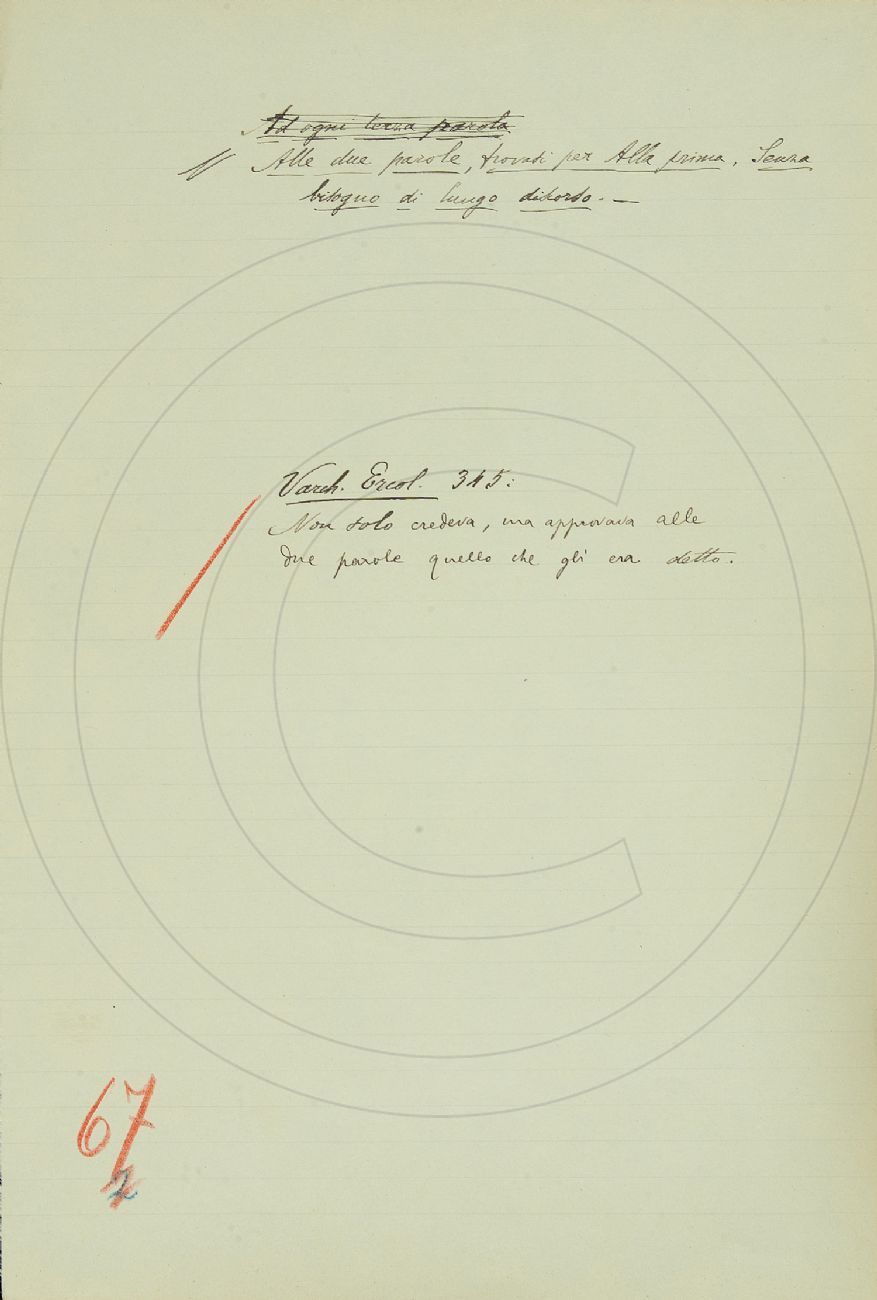 Ad ogni terza parola
Alle due parole, trovasi per Alla prima, Senza
bisogno di lungo discorso. —
Varch. Ercol. 345:
Non solo credeva, ma approvava alle
due parole quello che gli era detto.
67
2